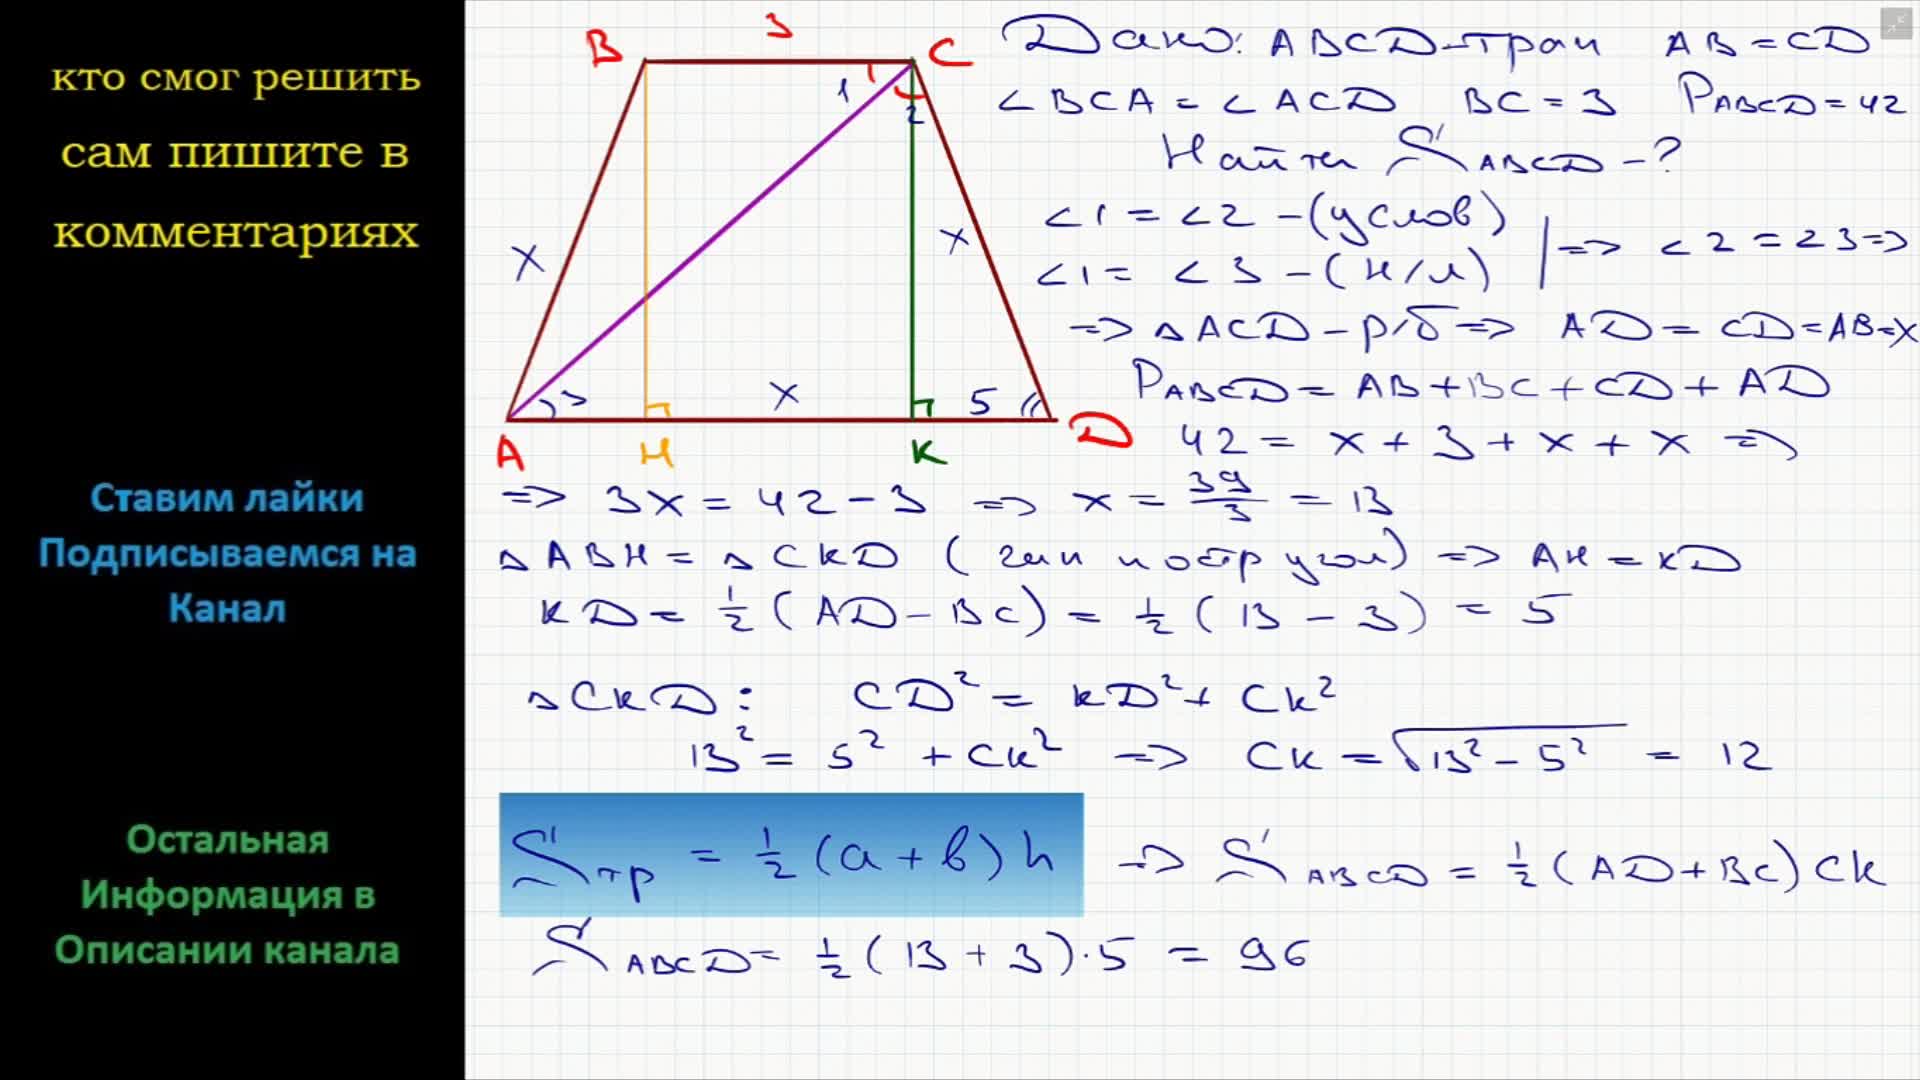 кто смог решить
сам пишите в
комментариях
Ставим лайки
Подписываемся на
Канал
Остальная
Информация в
Описании канала
B 3 C
1 2
x x
3 x 5
A H K D
Дано: ABCD-трап AB = CD
∠BCA = ∠ACD BC = 3 P_ABCD = 42
Найти S_ABCD - ?
∠1 = ∠2 - (услов)
∠1 = ∠3 - (н/л) | => ∠2 = ∠3 =>
=> △ACD - р/б => AD = CD = AB = x
P_ABCD = AB + BC + CD + AD
42 = x + 3 + x + x =>
=> 3x = 42 - 3 => x = 39/3 = 13
△ABH = △CKD (гип и остр угол) => AH = KD
KD = 1/2 (AD - BC) = 1/2 (13 - 3) = 5
△CKD: CD² = KD² + CK²
13² = 5² + CK² => CK = √(13² - 5²) = 12
Sтр = 1/2 (a + b) h => S_ABCD = 1/2 (AD + BC) CK
S_ABCD = 1/2 (13 + 3) · 5 = 96